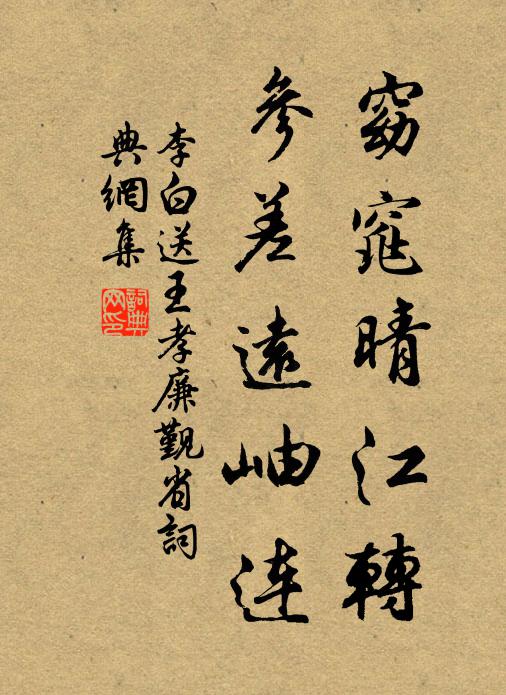 窈窕晴江轉
參差遠岫連
李白送王孝廉覲省詞
典網集
詞典網印